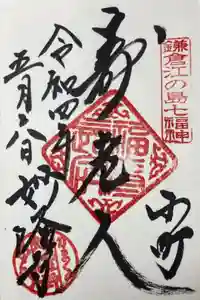 鎌倉江の島七福神
小町
壽老人
令和四年
五月六日
妙隆寺